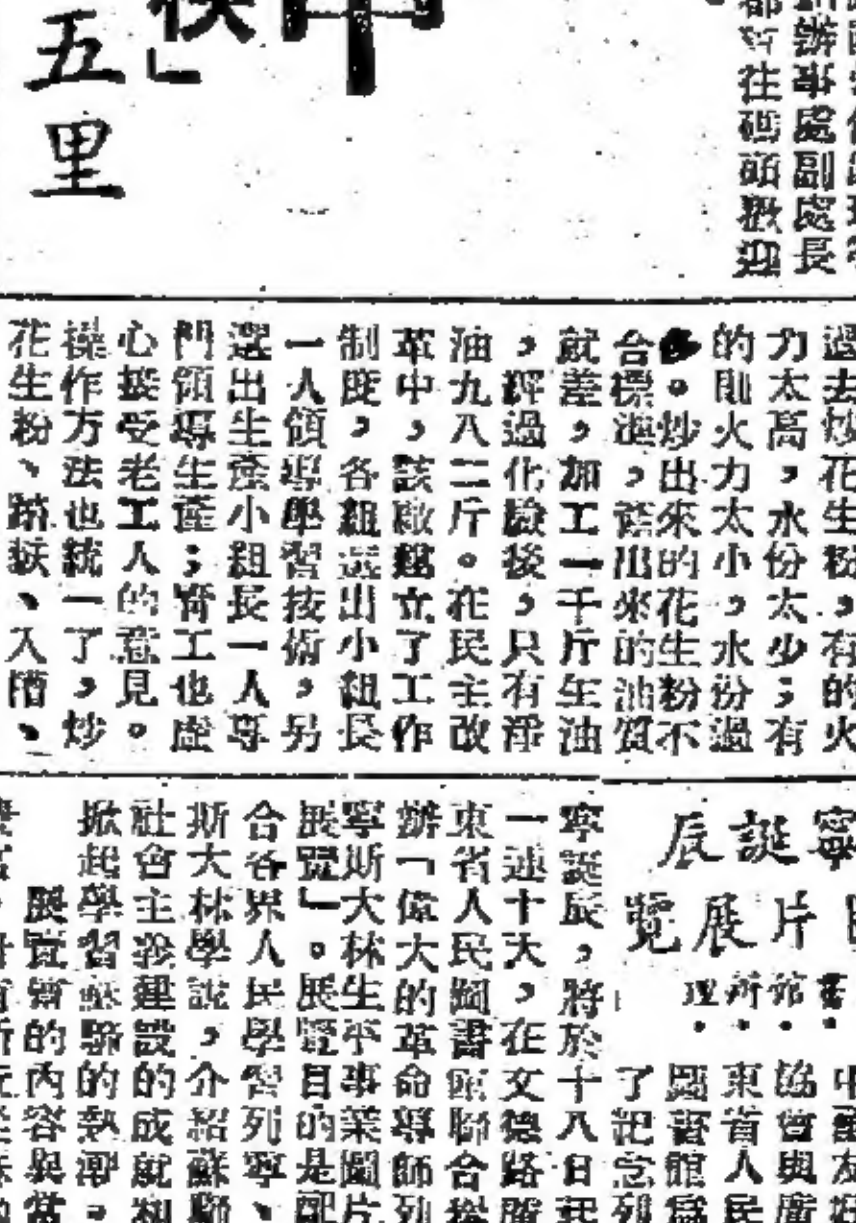 辦事處副處長
往碼頭歡迎
五里
過去炒花生粉,有的火
力太高,水份太少;有
的則火力太小,水份過
多。炒出來的花生粉不
合標準,榨出來的油質
就差,加工一千斤生油
,經過化驗後,只有淨
油九八二斤。在民主改
革中,該廠建立了工作
制度,各組選出小組長
一人領導學習技術,另
選出生產小組長一人專
門領導生產;青工也虛
心接受老工人的意見。
操作方法也統一了,炒
花生粉、踏麩、入槽、
誕辰
片展覽
館
所
理
協會與廣
東省人民
圖書館為
了紀念列
寧誕辰,將於十八日起
一連十天,在文德路廣
東省人民圖書館聯合舉
辦「偉大的革命導師列
寧斯大林生平事業圖片
展覽」。展覽目的是配
合各界人民學習列寧、
斯大林學說,介紹蘇聯
社會主義建設的成就和
掀起學習蘇聯的熱潮。
展覽會的內容與當